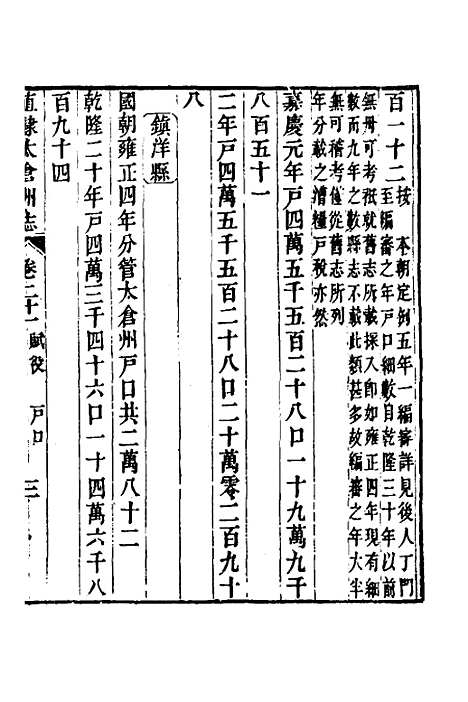 百一十二按 本朝定例五年一編審詳見後人丁門
至編審之年戶口細數自乾隆三十年以前
無冊可考祇就舊志所載採入卽如雍正四年現有細
數而九年之數縣志不載此類甚多故編審之年大半
無可稽考僅從舊志所列
年分載之漕糧戶稅亦然
嘉慶元年戶四萬五千五百二十八口一十九萬九千
八百五十一
二年戶四萬五千五百二十八口二十萬零二百九十
八
鎮洋縣
國朝雍正四年分管太倉州戶口共二萬八十二
乾隆二十年戶四萬三千四十六口一十四萬六千八
百九十四
直隸太倉州志 卷二十一 賦役 戶口 三